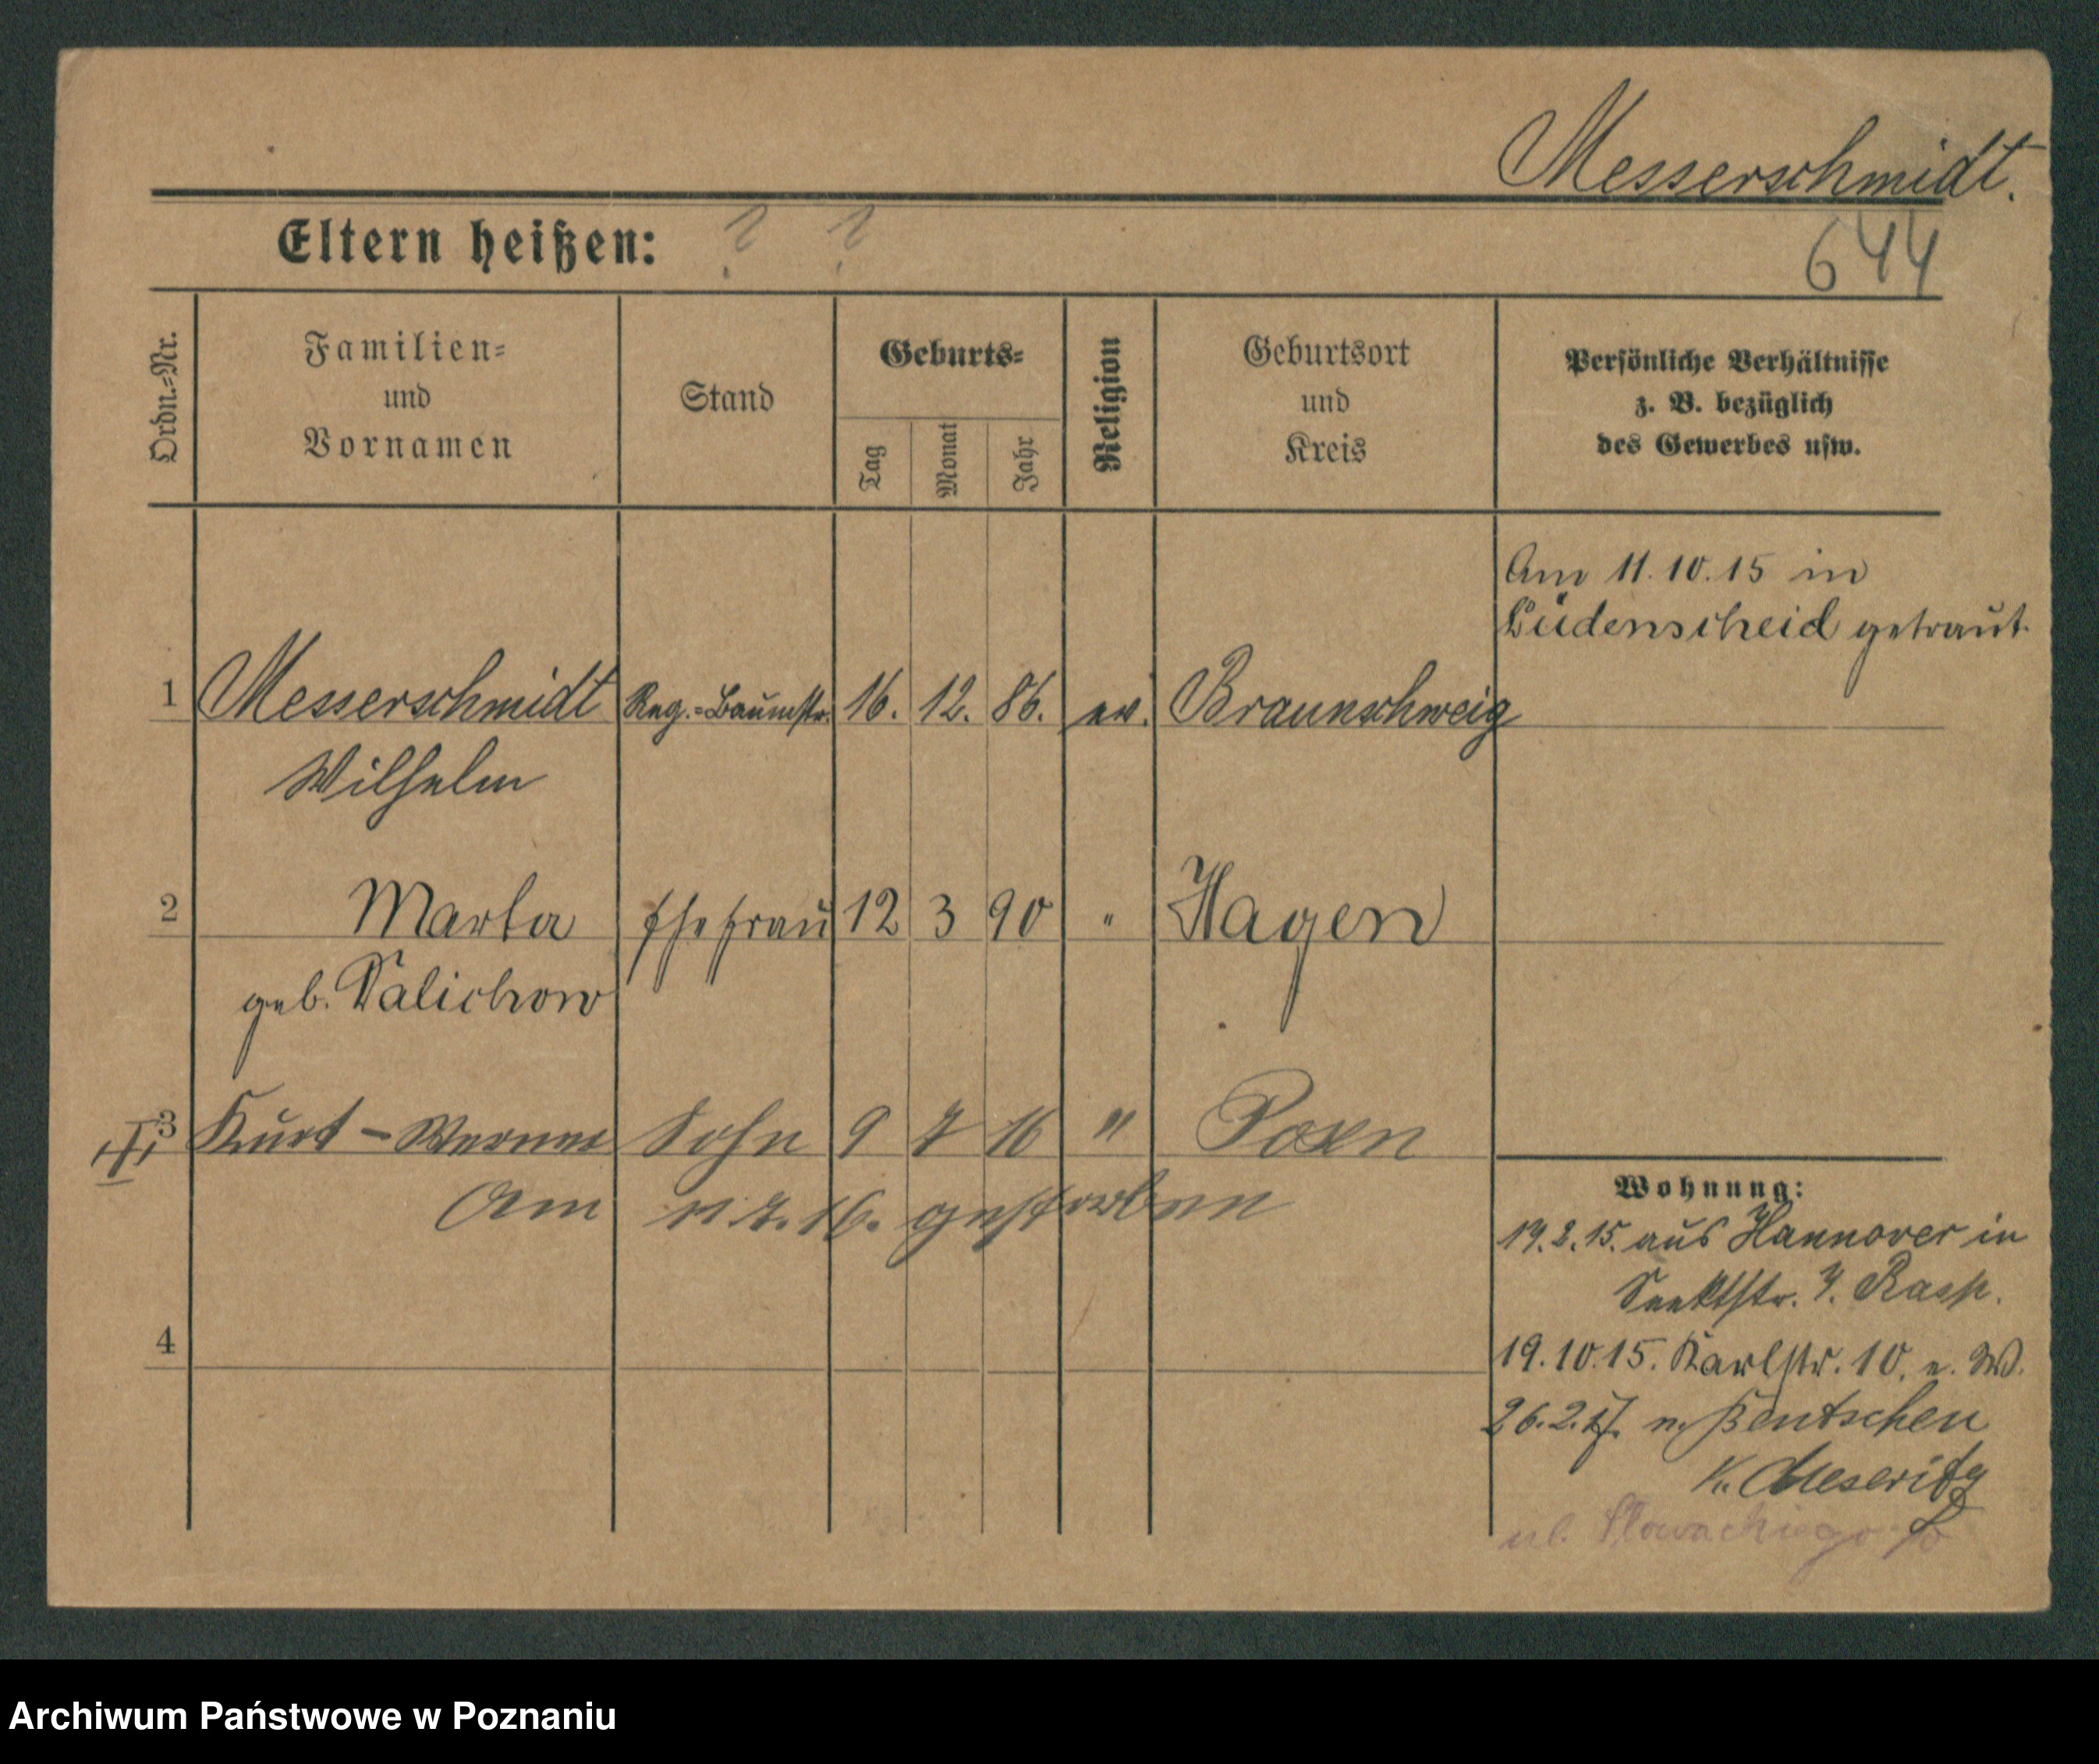 Messerschmidt.
Eltern heißen: ? ?
644
Ordn.=Nr.
Familien=
und
Vornamen
Stand
Geburts=
Tag
Monat
Jahr
Religion
Geburtsort
und
Kreis
Persönliche Verhältnisse
z. B. bezüglich
des Gewerbes usw.
Am 11.10.15 in
Lüdenscheid getraut.
1 Messerschmidt Reg.=Baumstr. 16. 12. 86. ev. Braunschweig
Wilhelm
2 Marta Ehefrau 12 3 90 " Hagen
geb. Kalichow
3 Kurt-Werner Sohn 9 7 16 " Posen
Am 11 7. 16. gestorben
Wohnung:
19.2.15. aus Hannover in
7. Rasp.
4
19.10.15. Karlstr. 10. e. W.
26.2.17. n. Bentschen
K. Meseritz
ul. Słowackiego
Archiwum Państwowe w Poznaniu